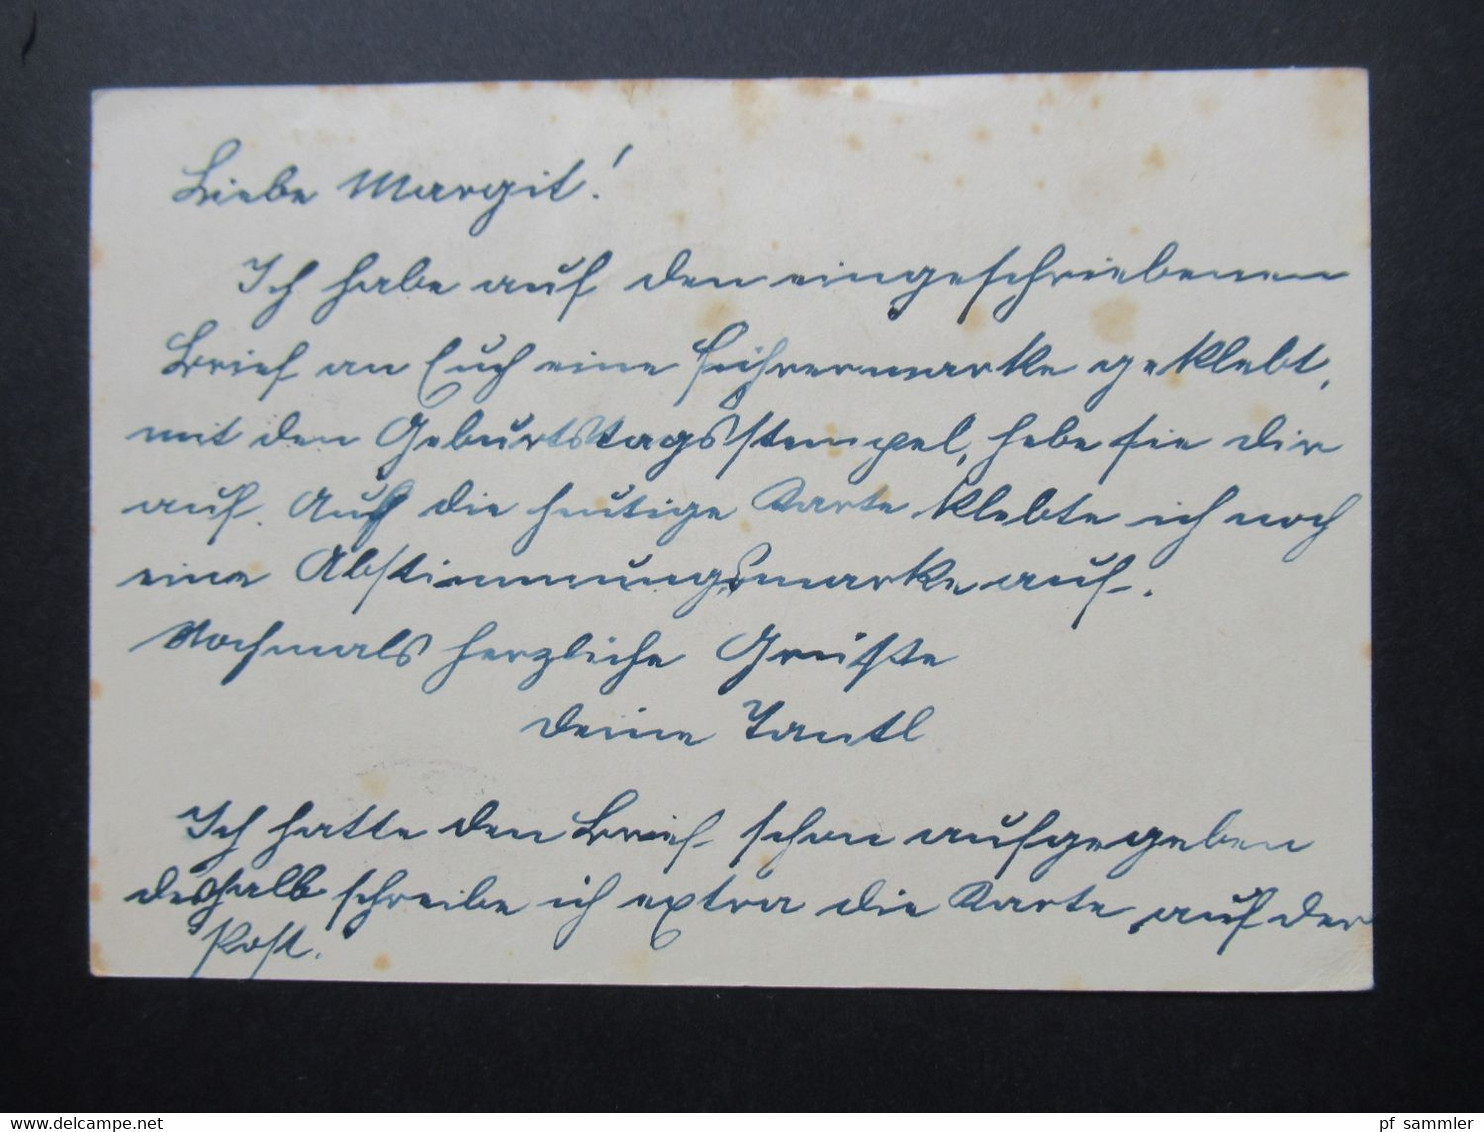 Liebe Margit!
Ich habe auf den eingeschriebenen
Brief an Euch eine Führermarke geklebt,
mit den Geburtstagsstempel, hebe sie dir
auf. Auf die heutige Karte klebte ich noch
eine Abstimmungsmarke auf.
Nochmals herzliche Grüße
deine Tantl
Ich hatte den Brief schon aufgegeben
deshalb schreibe ich extra die Karte auf der
Post.
www.delcampe.net
pf_sammler